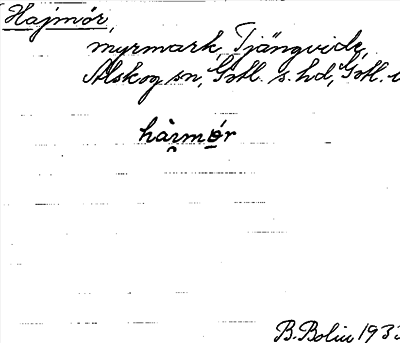 Hajmór,
myrmark, Tjängvide,
Alskog sn, Gotl. s. hd, Gotl.
hàrmór
B. Bolin 193